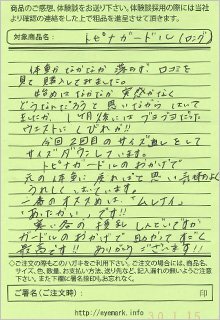 商品のご感想、体験談をお送り下さい。体験談採用の際には当社
より確認の連絡をした上で粗品を進呈させて頂きます。
対象商品名: トピナガードル(ロング)
体重がなかなか落ちず、口コミを
見て購入してみました。
初めはなかなか突然かなく
どうなんだろうと思いながらはいて
ましたが、1ヶ月後にはブヨブヨだった
ウエストにくびれが!!
今回2回目のサイズ直しをして
サイズダウンしています。
トピナガードルのおかげで
元の体重に戻れば
うれしく
一番のオススメは、「ムレナイ」
「あたたかい」です!!
寒い冬の
ガードルのおかげで
最高です!! ありがとうございます!!
◇ご注文の際もこのハガキをご利用下さい。ご注文の場合には、商品名、
サイズ、色、数量、お支払い方法、送り先など、記入漏れの無いようご注意
下さい。また下欄に署名捺印も忘れなく。
◇ご署名(ご注文時): 印
http://eyemark.info
30.1.15